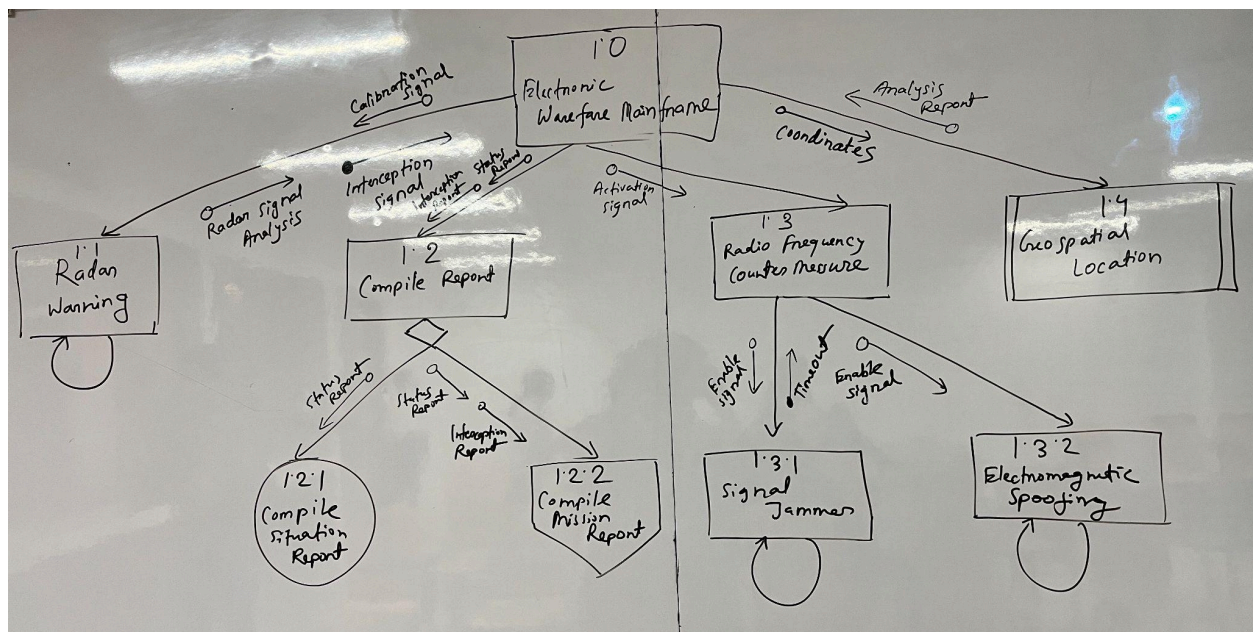 1.0
Electronic
Warefare Mainframe
Calibration
Signal
Analysis
Report
Coordinates
Interception
Signal
Radar Signal
Analysis
Status
Report
Interception
Report
Activation
Signal
1.1
Radar
Warning
1.2
Compile Report
1.3
Radio Frequency
Counter Messure
1.4
Geospatial
Location
Status
Report
Status
Report
Interception
Report
Enable
signal
Timeout
Enable
signal
1.2.1
Compile
Situation
Report
1.2.2
Compile
Mission
Report
1.3.1
Signal
Jammer
1.3.2
Electromagnetic
Spoofing